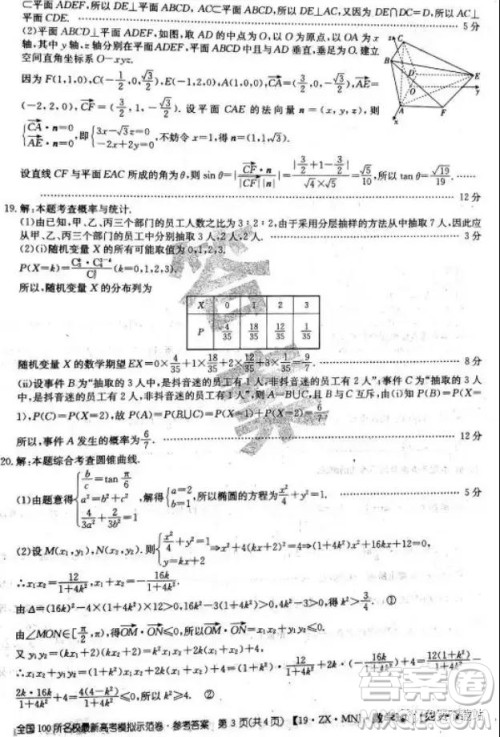 ⊂平面 ADEF,所以 DE⊥平面 ABCD, AC⊂平面 ABCD,所以 DE⊥AC,又因为 DE∩DC=D,所以 AC⊥
平面 CDE. 5 分
(2)平面 ABCD⊥平面 ADEF,如图,取 AD 的中点为 O,以 O 为原点,以 OA 为 x
轴,其中 y 轴,z 轴分别在平面 ADEF,平面 ABCD 中且与 AD 垂直,垂足为 O. 建立
空间直角坐标系 O-xyz.
因为 F(1,1,0),C(-1/2,0,√3/2),E(-1,2,0),A(1,0,0),CA=(3/2,0,-√3/2),AE=
(-2,2,0),CF=(3/2,1,-√3/2). 设平面 CAE 的法向量 n=(x,y,z),则
{CA·n=0 AE·n=0,即{3x-√3z=0 -2x+2y=0,不妨令 x=1,得 n=(1,1,√3).
设直线 CF 与平面 EAC 所成的角为 θ,则 sin θ=|CF·n|/|CF||n|=|3/2+1-3/2|/(√4×√5)=√5/10,所以 tan θ=√19/19.
12 分
19. 解:本题考查概率与统计.
(1)由已知,甲、乙、丙三个部门的员工人数之比为 3∶2∶2,由于采用分层抽样的方法从中抽取 7 人,因此应
从甲、乙、丙三个部门的员工中分别抽取 3 人,2 人,2 人. 3 分
(2)(i)随机变量 X 的所有可能取值为 0,1,2,3.
(k=0,1,2,3).
所以,随机变量 X 的分布列为
X 0 1 2 3
P 4/35 18/35 12/35 1/35
随机变量 X 的数学期望 EX=0×4/35+1×18/35+2×12/35+3×1/35=9/7. 8 分
(ii)设事件 B 为“抽取的 3 人中,是抖音迷的员工有 1 人,非抖音迷的员工有 2 人”,事件 C 为“抽取的 3 人
中,是抖音迷的员工有 2 人,非抖音迷的员工有 1 人”,则 A=B∪C,且 B 与 C 互斥,由(i)知 P(B)=P(X=
1),P(C)=P(X=2),故 P(A)=P(B∪C)=P(X=1)+P(X=2)=6/7.
所以,事件 A 发生的概率为 6/7. 12 分
20. 解:本题综合考查圆锥曲线.
(1)由题意得{b/c=tan π/6 a²=b²+c² 4/3a²+2/3b²=1,解得{a=2 b=1,所以椭圆的方程为 x²/4+y²=1. 5 分
(2)设 M(x₁,y₁),N(x₂,y₂). 则{x²/4+y²=1 y=kx+2⇒x²+4(kx+2)²=4⇒(1+4k²)x²+16kx+12=0,
∴x₁x₂=12/(1+4k²),x₁+x₂=-16k/(1+4k²).
由 Δ=(16k)²-4×(1+4k²)×12>0,16k²-3(1+4k²)>0,4k²-3>0,得 k²>3/4. ①
OM·ON≤0⇒OM·ON=x₁x₂+y₁y₂≤0,
又 y₁y₂=(kx₁+2)(kx₂+2)=k²x₁x₂+2k(x₁+x₂)+4,
全国 100 所名校最新高考模拟示范卷·参考答案 第 3 页(共 4 页) 【19·ZX·MNJ